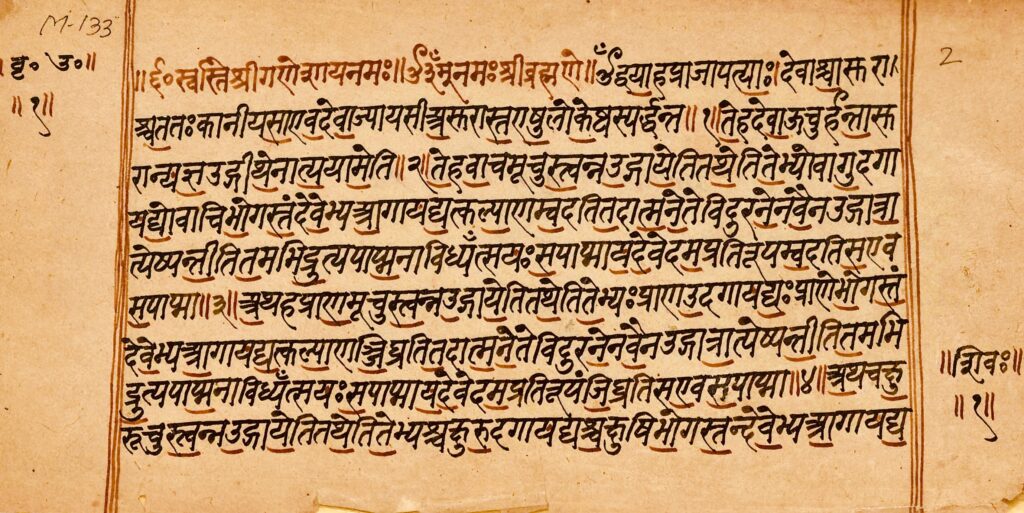 M-133
बृ॰ उ॰॥
॥१॥
2
॥६॰ स्वस्ति श्रीगणेशायनमः॥ ॐनमः श्रीब्रह्मणे॥ ॐद्वयाहप्राजापत्याः।देवाश्चासुरा।
श्चततःकानीयसाएवदेवाज्यायसीअसुरास्तएषुलोकेष्वस्पर्द्धन्त॥१॥तेहदेवाऊचुर्हन्तासु
रान्यज्ञउद्गीथेनात्ययामेति॥२॥तेहवाचमूचुस्त्वन्नउद्गायेतितथेतितेभ्योवागुदगा
यद्योवाचिभोगस्तंदेवेभ्यआगायद्यत्कल्याणम्वदतितदात्मनेतेविदुरनेनवैनउद्गात्रा
त्येष्यन्तीतितमभिद्रुत्यपाप्मनाविध्यँत्सयःसपाप्मायदेवेदमप्रतिरूपम्वदतिसएव
सपाप्मा॥३॥अथहप्राणमूचुस्त्वन्नउद्गायेतितथेतितेभ्यःप्राणउदगायद्यःप्राणेभोगस्तं
देवेभ्यआगायद्यत्कल्याणञ्जिघ्रतितदात्मनेतेविदुरनेनवैनउद्गात्रात्येष्यन्तीतितमभि
द्रुत्यपाप्मनाविध्यँत्सयःसपाप्मायदेवेदमप्रतिरूपंजिघ्रतिसएवसपाप्मा॥४॥अथचक्षु
रूचुस्त्वन्नउद्गायेतितथेतितेभ्यश्चक्षुरुदगायद्यश्चक्षुषिभोगस्तन्देवेभ्यआगायद्य
॥शिवः॥
॥१॥